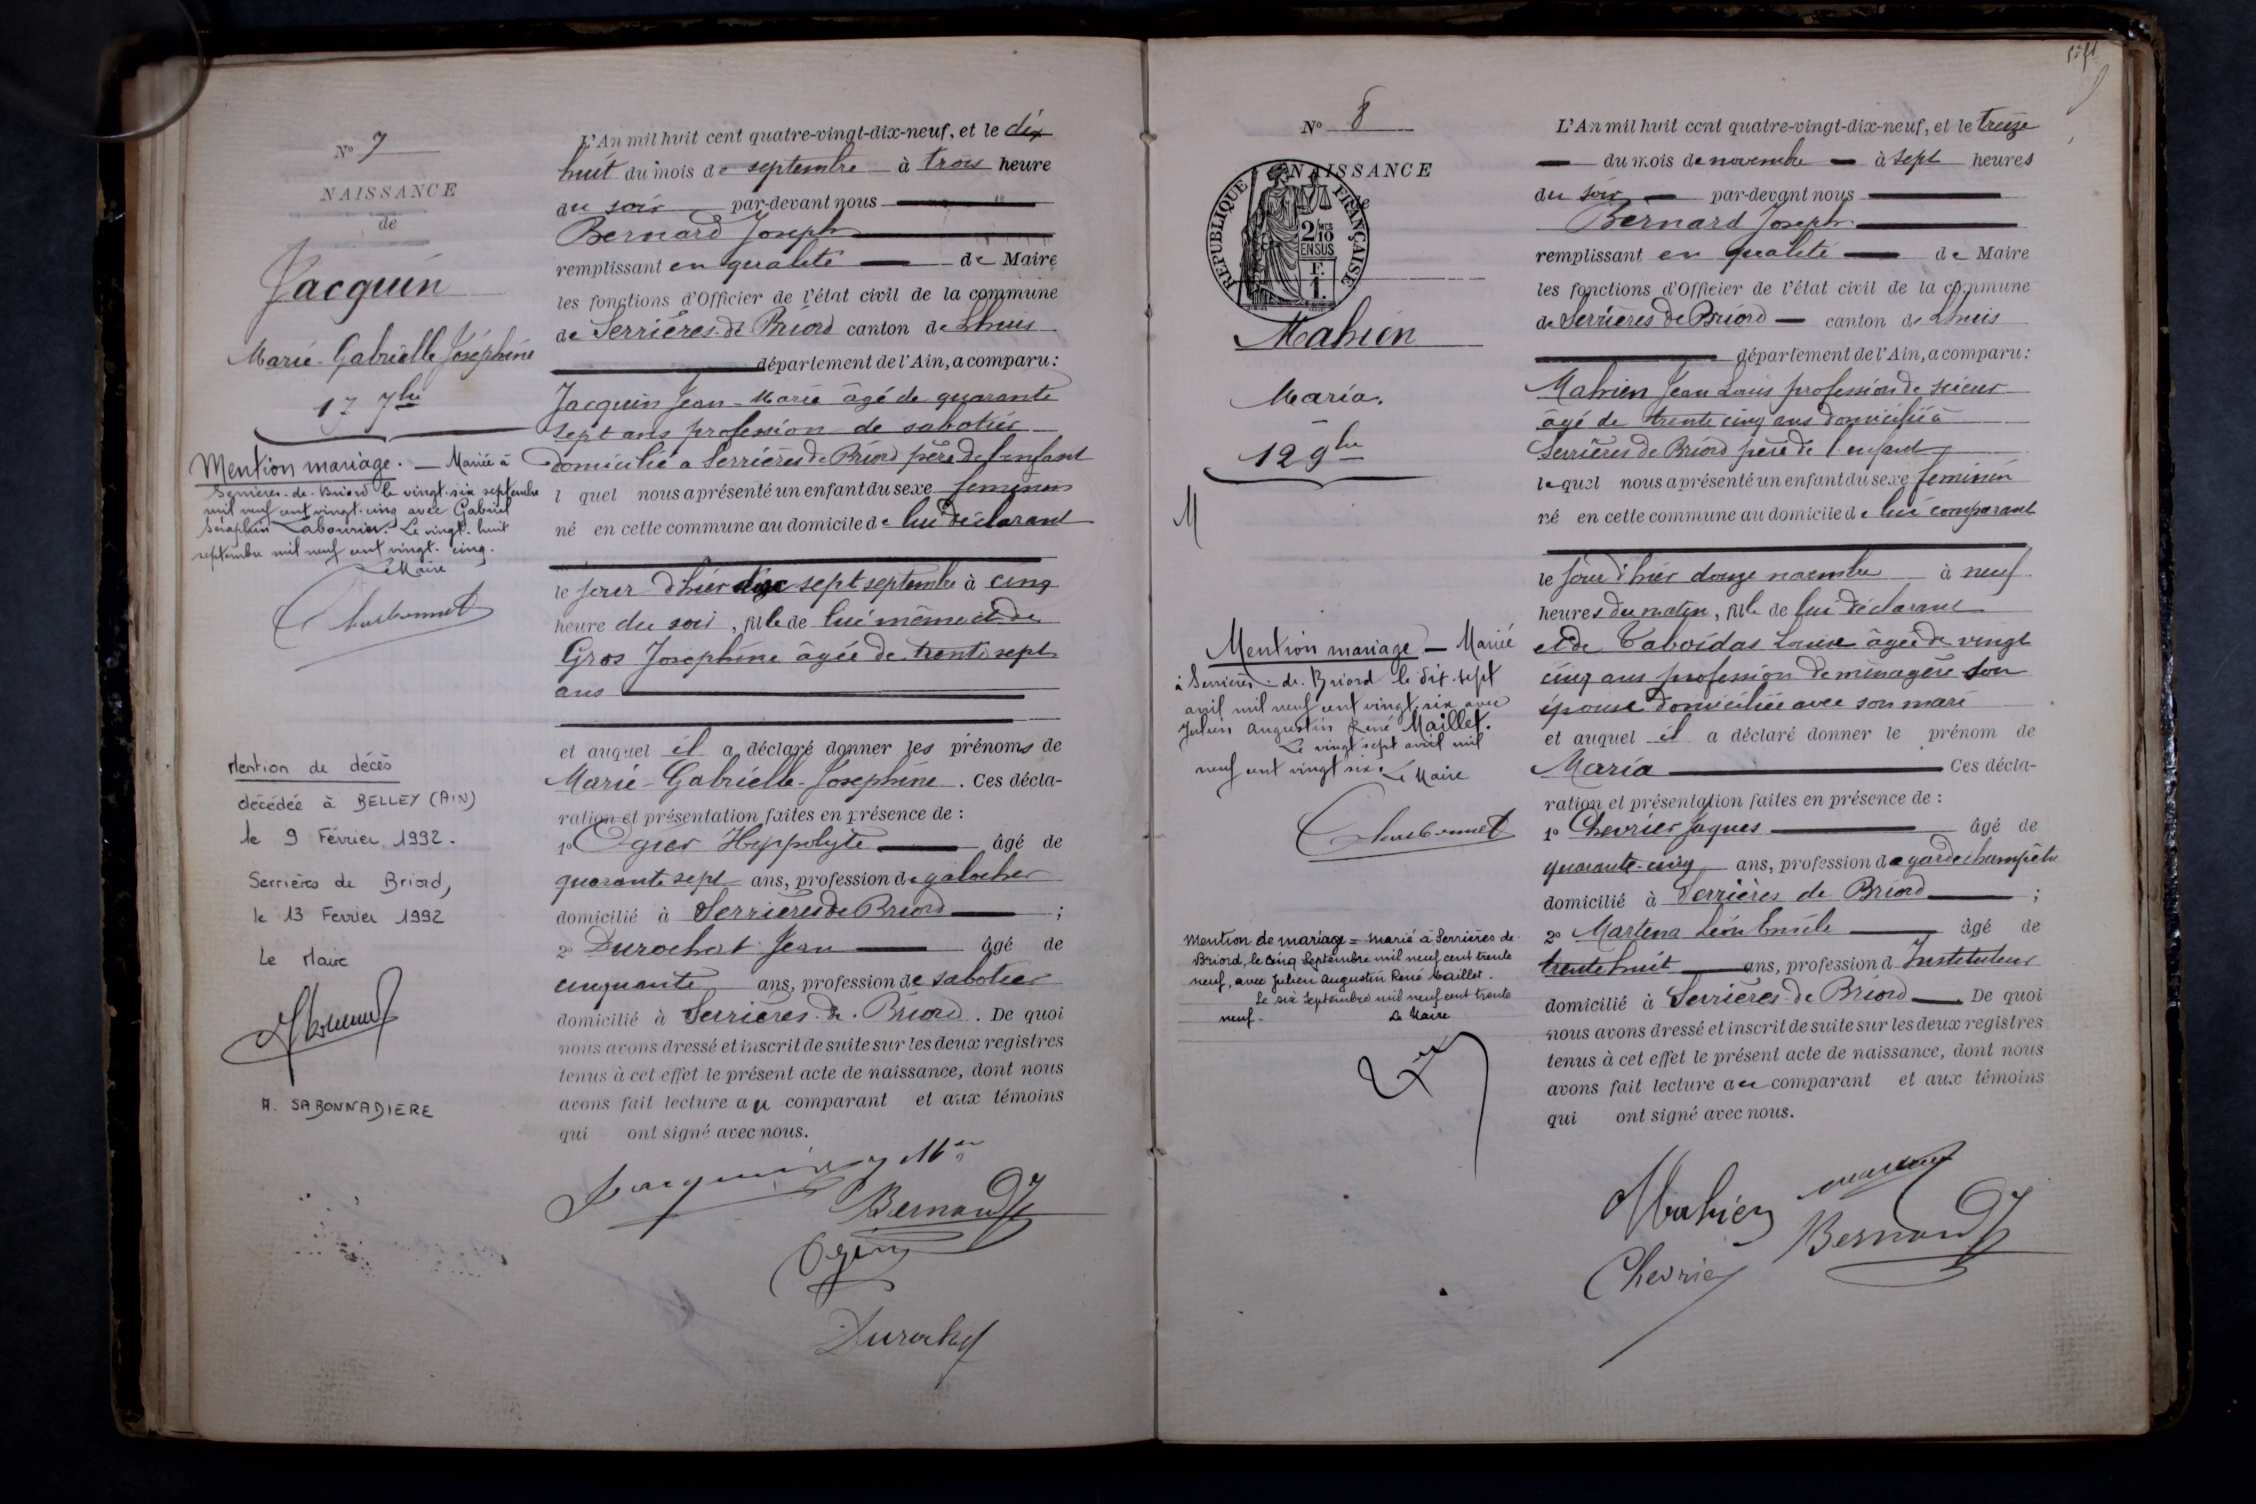 N° 7
NAISSANCE
de
Jacquin
Marie-Gabrielle Joséphine
17 7bre
Mention mariage. — Mariée à
Serrières-de-Briord le vingt-six septembre
mil neuf cent vingt-cinq avec Gabriel
Séraphin Labourier. Le vingt-huit
septembre mil neuf cent vingt-cinq.
Le Maire
Charbonnet
Mention de décès
décédée à BELLEY (AIN)
le 9 Février 1992.
Serrières de Briord,
le 13 Fevrier 1992
Le Maire
A. SABONNADIERE
L'An mil huit cent quatre-vingt-dix-neuf, et le dix
huit du mois de septembre à trois heure
du soir par-devant nous
Bernard Joseph
remplissant en qualité de Maire
les fonctions d'Officier de l'état civil de la commune
de Serrières-de Briord canton de Lhuis
département de l'Ain, a comparu:
Jacquin Jean-Marie âgé de quarante
sept ans profession de sabotier
domicilié a Serrières de Briord père de l'enfant
l quel nous a présenté un enfant du sexe feminin
né en cette commune au domicile de lui déclarant
le jour d'hier dix sept septembre à cinq
heure du soir, fille de lui même et de
Gros Joséphine âgée de trente sept
ans
et auquel il a déclaré donner les prénoms de
Marie-Gabrielle-Joséphine. Ces décla-
ration et présentation faites en présence de :
1° Ogier Hyppolyte âgé de
quarante sept ans, profession de galocher
domicilié à Serrières de Briord ;
2° Durochat Jean âgé de
cinquante ans, profession de sabotier
domicilié à Serrières-de-Briord. De quoi
nous avons dressé et inscrit de suite sur les deux registres
tenus à cet effet le présent acte de naissance, dont nous
avons fait lecture au comparant et aux témoins
qui ont signé avec nous.
Jacquin
Bernard J
Ogier
Durochat
N° 8
NAISSANCE
de
REPUBLIQUE FRANÇAISE
2/10
EN SUS
F.
1.
Mahien
Maria.
12 9bre
M
Mention mariage — Mariée
à Serrières-de-Briord le dix-sept
avril mil neuf cent vingt-six avec
Julien Augustin René Maillet.
Le vingt sept avril mil
neuf cent vingt six. Le Maire
Charbonnet
Mention de mariage = Marié à Serrières de
Briord, le cinq Septembre mil neuf cent trente
neuf, avec Julien Augustin René Maillet.
Le six Septembre mil neuf cent trente
neuf. Le Maire
L'An mil huit cent quatre-vingt-dix-neuf, et le treize
du mois de novembre à sept heures
du soir par-devant nous
Bernard Joseph
remplissant en qualité de Maire
les fonctions d'Officier de l'état civil de la commune
de Serrières de Briord canton de Lhuis
département de l'Ain, a comparu:
Mahien Jean Louis profession de scieur
âgé de trente cinq ans domicilié à
Serrières de Briord père de l'enfant
lequel nous a présenté un enfant du sexe feminin
né en cette commune au domicile de lui comparant
le jour d'hier douze novembre à neuf
heures du matin, fille de lui déclarant
et de Taboidas Louise âgée de vingt
cinq ans profession de ménagère son
épouse domiciliée avec son mari
et auquel il a déclaré donner le prénom de
Maria Ces décla-
ration et présentation faites en présence de :
1° Chevrier Jaques âgé de
quarante-cinq ans, profession de garde champêtre
domicilié à Serrières de Briord ;
2° Martena Léon Emile âgé de
trente huit ans, profession d Instituteur
domicilié à Serrières-de Briord De quoi
nous avons dressé et inscrit de suite sur les deux registres
tenus à cet effet le présent acte de naissance, dont nous
avons fait lecture au comparant et aux témoins
qui ont signé avec nous.
Mahien
Bernard J
Chevrier